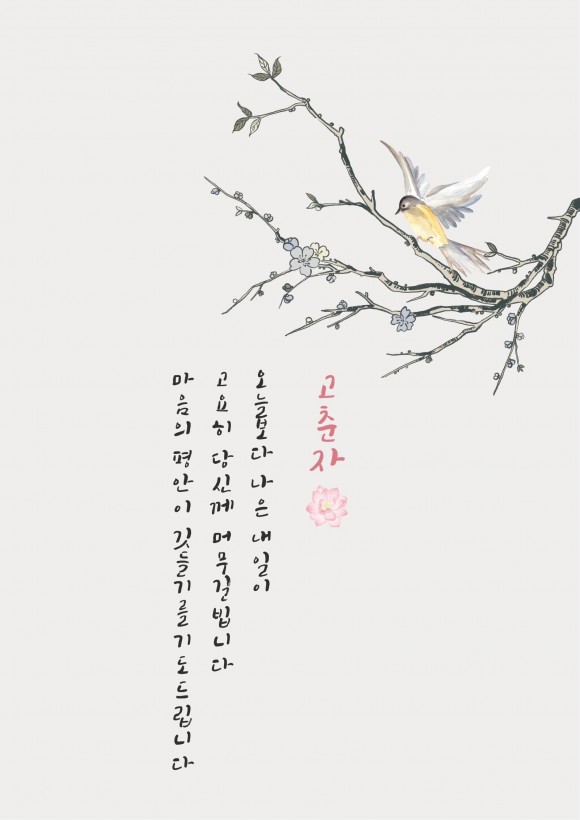 고춘자
오늘보다 나은 내일이
고요히 당신께 머무길 빕니다
마음의 평안이 깃들기를 기도드립니다